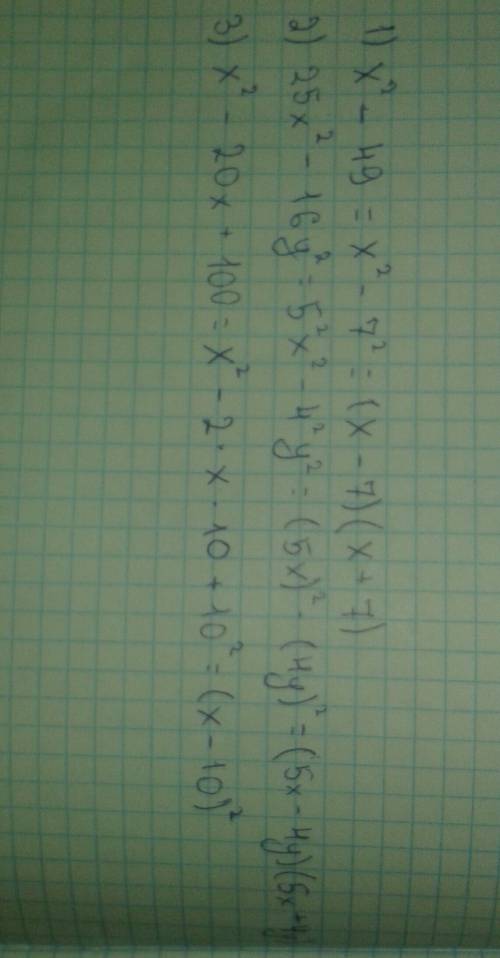 1) x² - 49 = x² - 7² = (x - 7)(x + 7)
2) 25x² - 16y² = 5²x² - 4²y² = (5x)² - (4y)² = (5x - 4y)(5x + 4y)
3) x² - 20x + 100 = x² - 2 · x · 10 + 10² = (x - 10)²